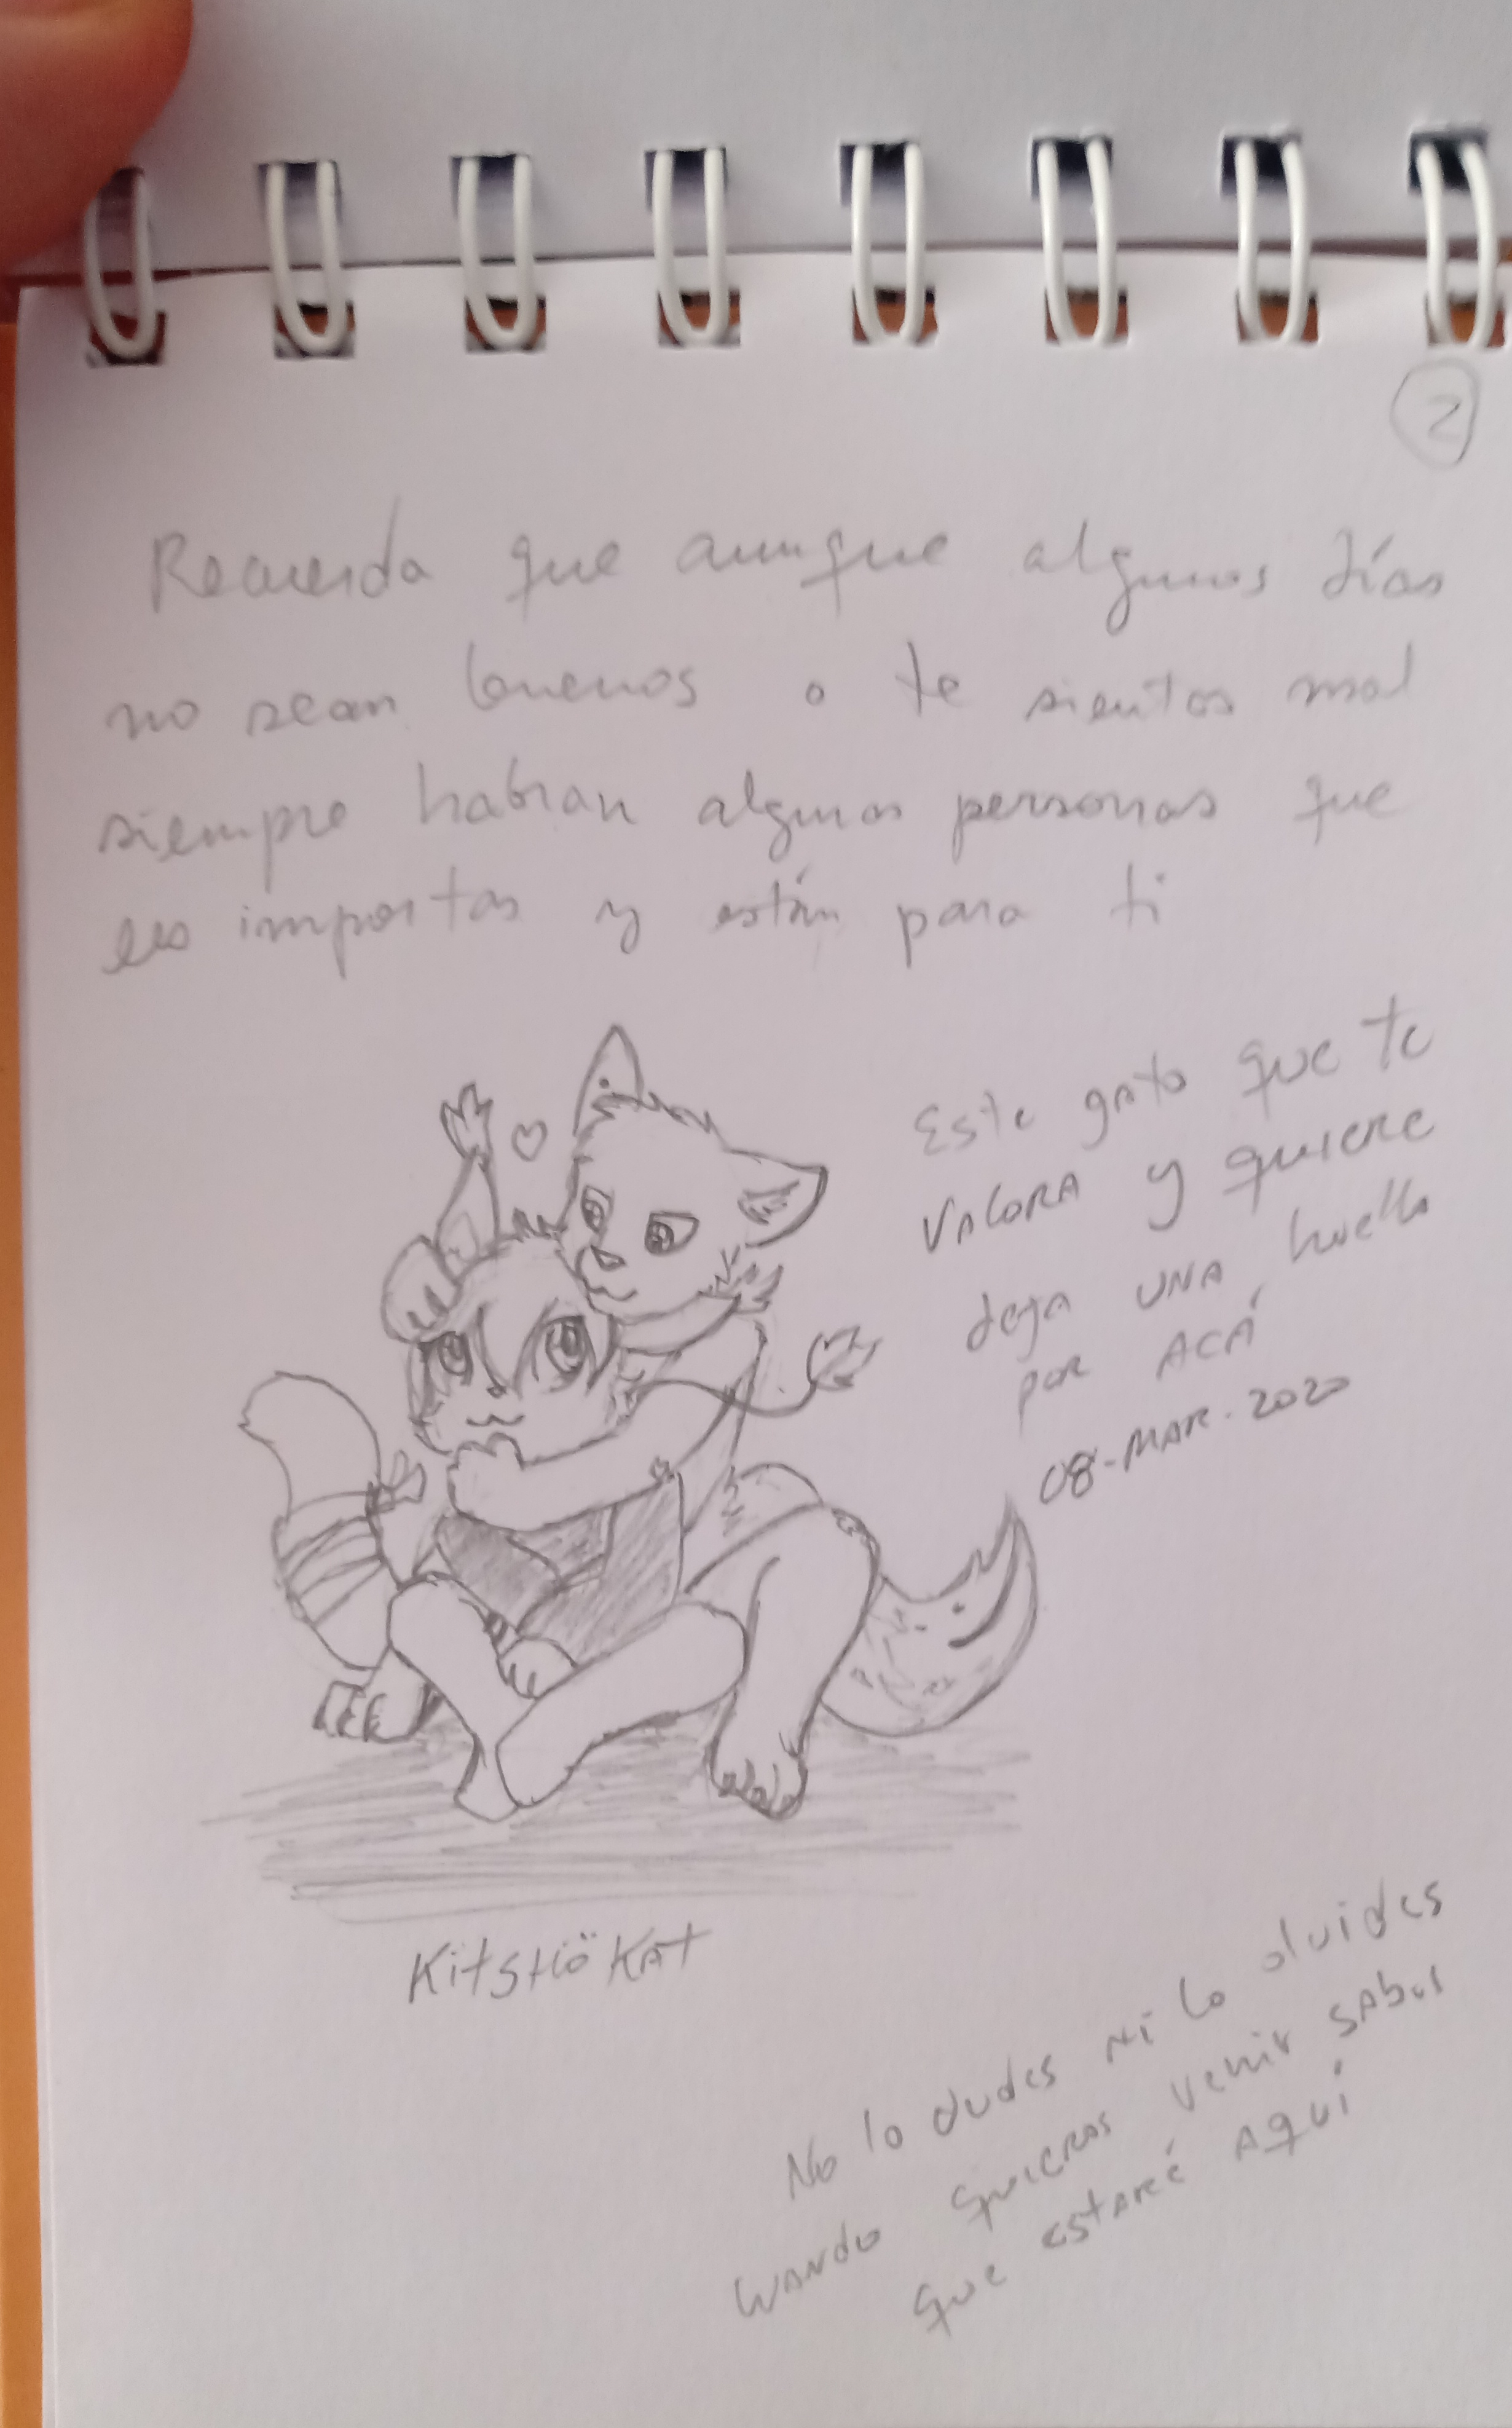 2
Recuerda que aunque algunos días
no sean buenos o te sientas mal
siempre habran algunas personas que
les importas y están para ti
Este gato que te
valora y quiere
deja una huella
por acá
08-MAR-2020
KitsHö KAt
No lo dudes ni lo olvides
cuando quieras venir sabes
que estaré aquí